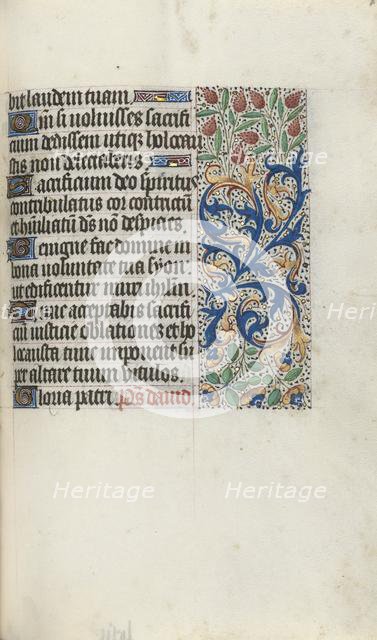 bit laudem tuam
Qm si uoluisses sacrifi
cium dedissem utiqꝫ holocau
stis non delectaberis
Sacrificium deo spiritus
contribulatus cor contractū
et hūiliatū ds non despicies
Benigne fac domine in
bona uoluntate tua syon
ut edificentur muri ihrlm
Tunc acceptabis sacrifi
cium iusticie oblationes et ho
locausta tunc imponent su
per altare tuum uitulos.
Gloria patri ps̄ dauid
Heritage Heritage Heritage
Heritage Heritage Heritage